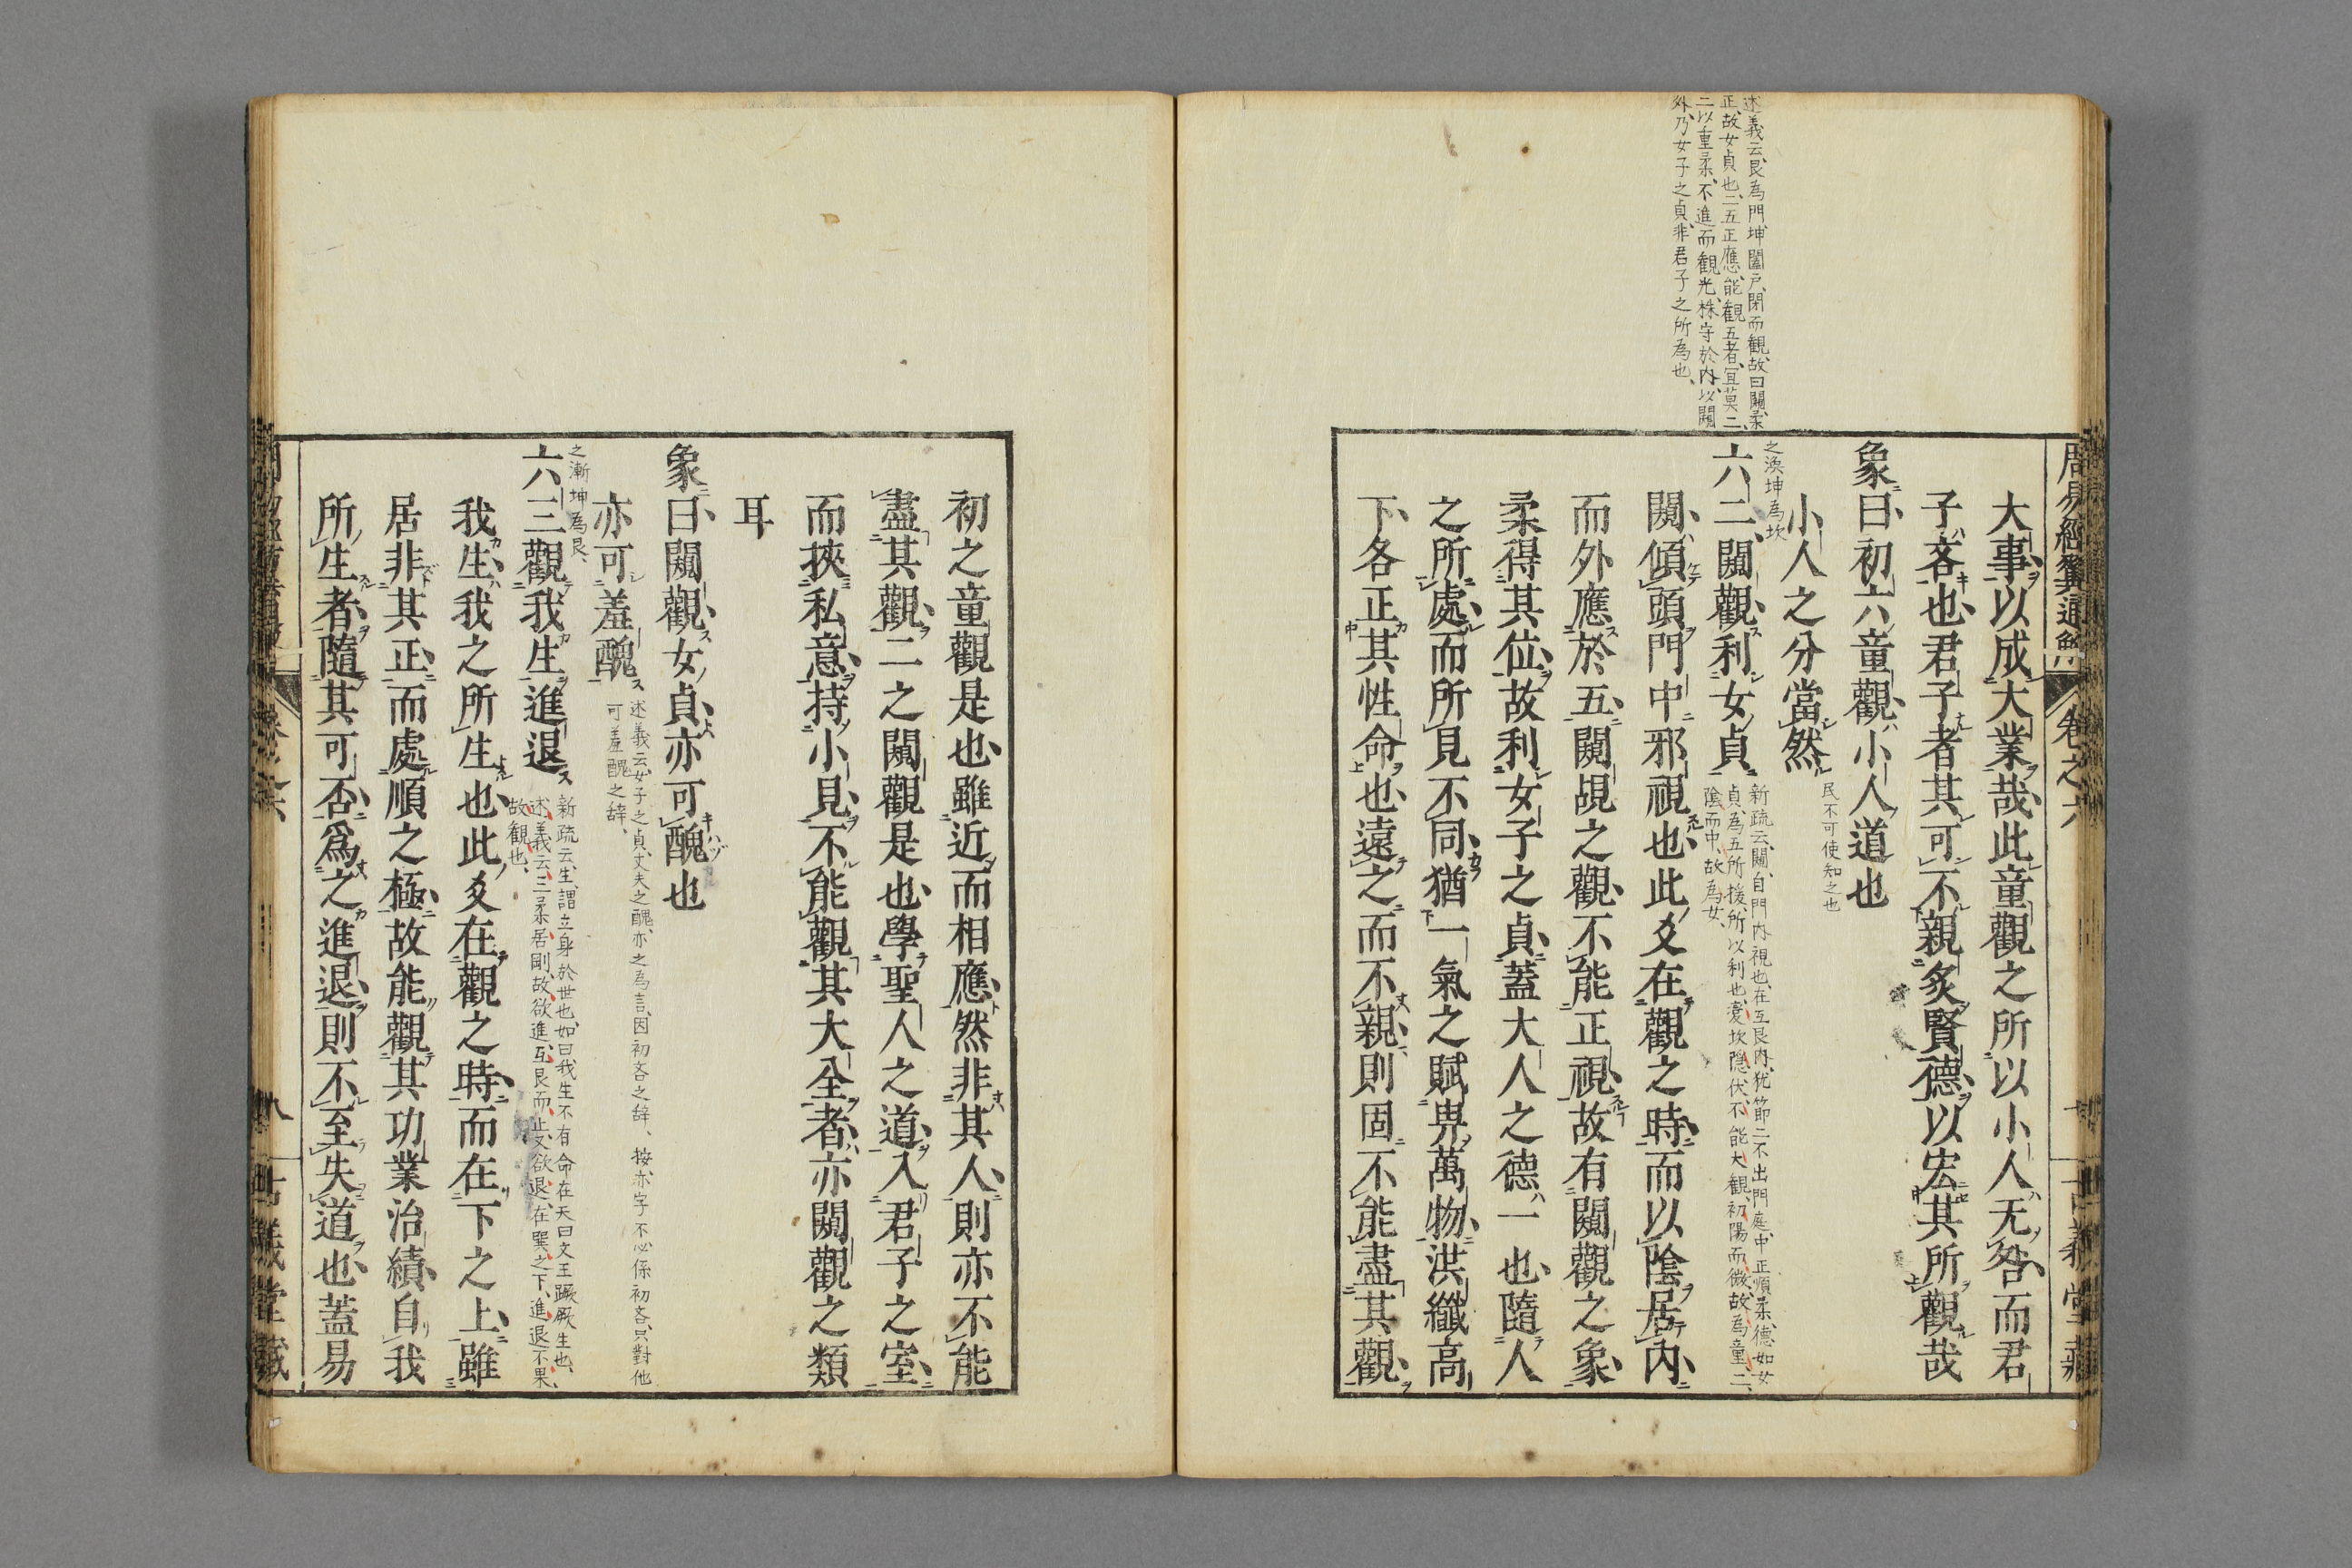 周易經翼通解 卷之六 古義堂藏
述義云艮為門、坤闔戸、閉而観、故曰闚、柔
正故女貞也、二五正應、能観五者、宜莫二、
二以重柔、不進而観光、株守於內、以闚
外、乃女子之貞、非君子之所為也、
大事以成大業哉此童觀之所以小人无咎而君
子吝也君子者其可不親炙賢德以宏其所觀哉
象曰初六童觀小人道也
小人之分當然
民不可使知之也
之渙坤為坎
六二闚觀利女貞
新疏云、闚、自門內視也、在互艮內、犹節二不出門庭、中正順柔、德如女
貞、為五所援、所以利也、変坎隠伏、不能大観、初陽而微、故為童、二、
陰而中、故為女、
闚傾頭門中邪視也此爻在觀之時而以陰居內
而外應於五闚覘之觀不能正視故有闚觀之象
柔得其位故利女子之貞蓋大人之德一也隨人
之所處而所見不同猶一氣之賦畀萬物洪纖高
下各正其性命也遠之而不親則固不能盡其觀
初之童觀是也雖近而相應然非其人則亦不能
盡其觀二之闚觀是也學聖人之道入君子之室
而挾私意持小見不能觀其大全者亦闚觀之類
耳
象曰闚觀女貞亦可醜也
亦可羞醜
述義云、女子之貞、丈夫之醜、亦之為言、因初吝之辞、 按、亦字不必係初吝、只對他
可羞醜之辞、
之漸坤為艮、
六三觀我生進退
新疏云、生、謂立身於世也、如曰我生不有命在天曰文王蹶厥生也、
述義云、三柔居剛、故欲進、互艮而止、又欲退、在巽之下、進退不果、
故観也、
我生我之所生也此爻在觀之時而在下之上雖
居非其正而處順之極故能觀其功業治績自我
所生者隨其可否爲之進退則不至失道也蓋易
卷之六 八 古義堂藏